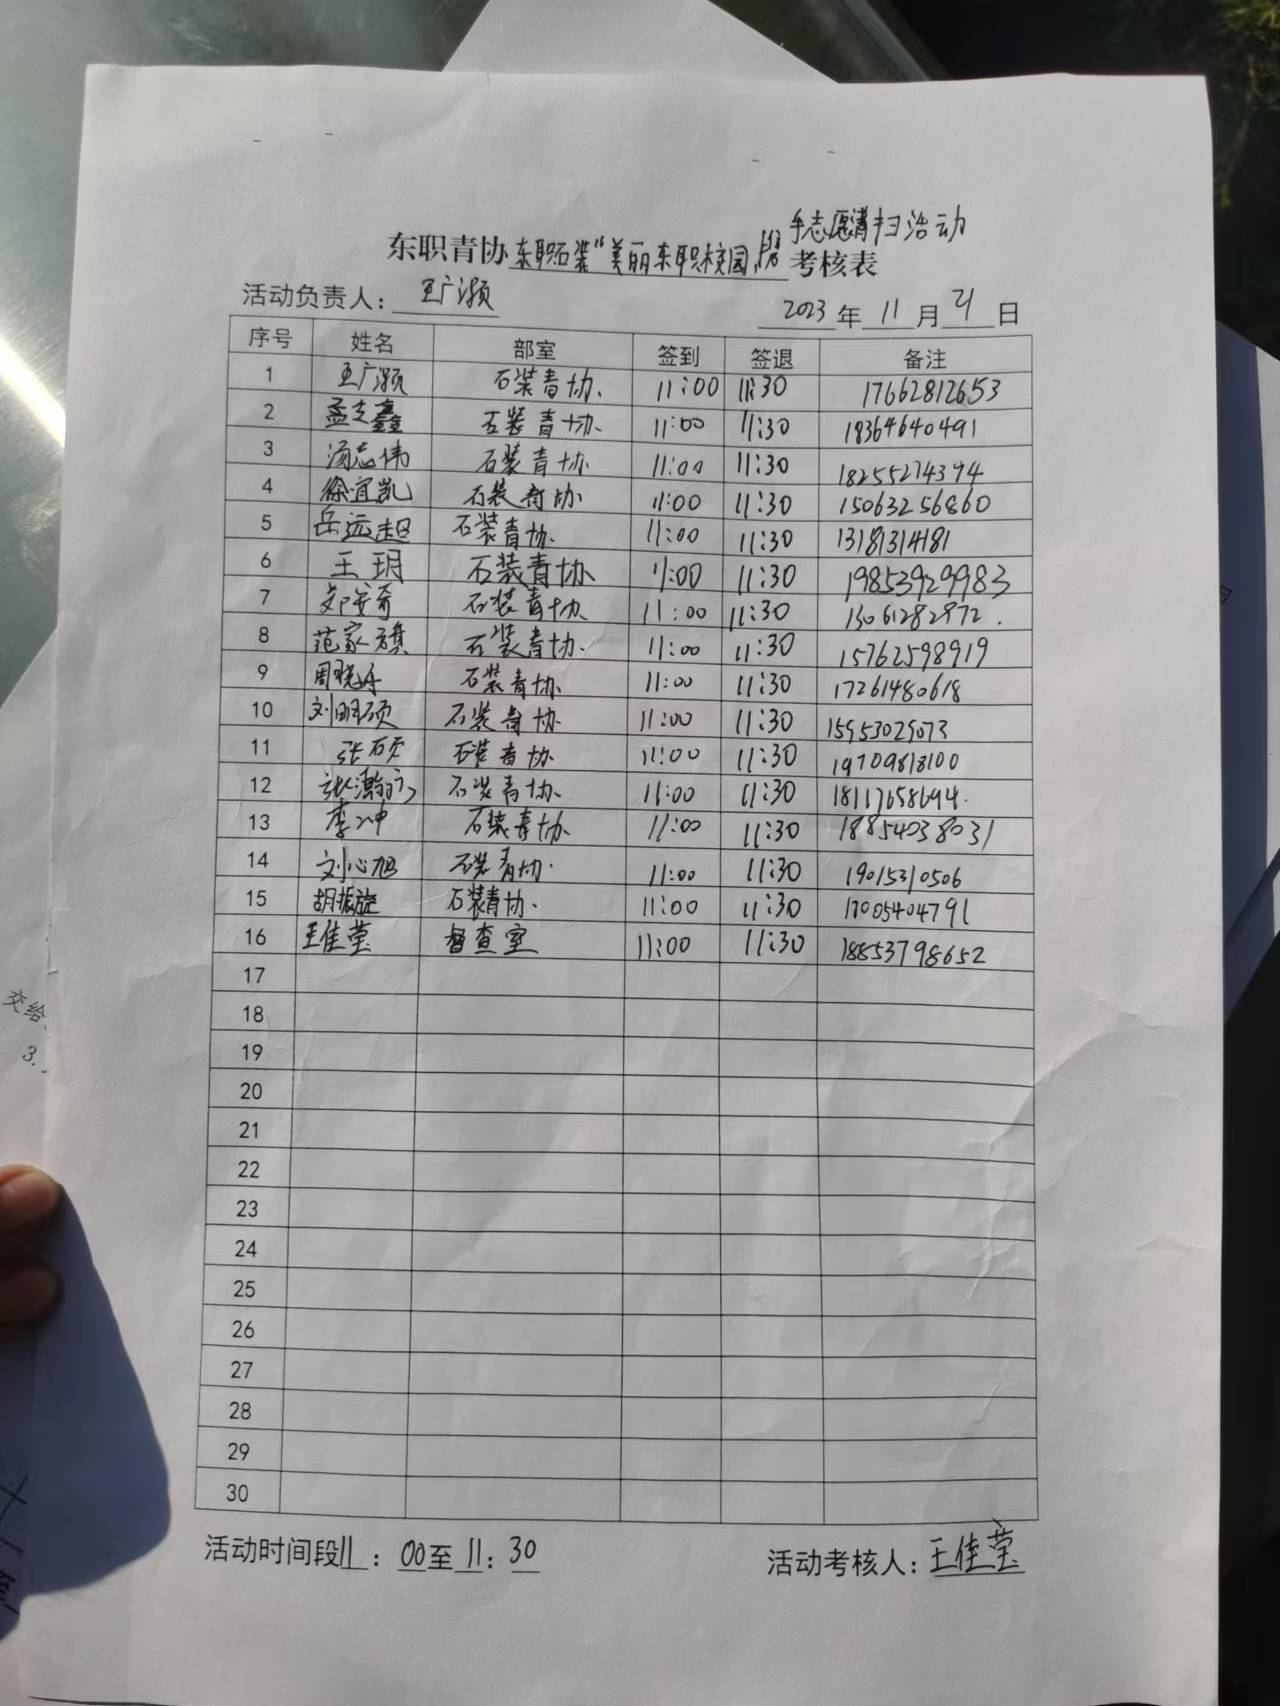 手志愿清扫活动
东职青协东职石装“美丽东职校园, 考核表
活动负责人: 王广灏
2023 年 11 月 21 日
序号 姓名 部室 签到 签退 备注
1 王广灏 石装青协. 11:00 11:30 17662812653
2 孟志鑫 石装青协. 11:00 11:30 18364640491
3 汤志伟 石装青协. 11:00 11:30 18255274394
4 徐宜凯 石装青协 11:00 11:30 15063256860
5 岳远超 石装青协. 11:00 11:30 13181314181
6 王玥 石装青协 11:00 11:30 19853929983
7 石装青协 11:00 11:30 13061282972.
8 范家旗 石装青协. 11:00 11:30 15762598919
9 周晓丹 石装青协. 11:00 11:30 17261480618
10 刘明硕 石装青协 11:00 11:30 15953029073
11 张硕 石装青协. 11:00 11:30 19709818100
12 张瀚 石装青协. 11:00 11:30 18117658694.
13 李冲 石装青协. 11:00 11:30 18854038031
14 刘心旭 石装青协. 11:00 11:30 19015310506
15 胡振旋 石装青协. 11:00 11:30 17005404791
16 王佳莹 督查室 11:00 11:30 18853798652
17
18
19
20
21
22
23
24
25
26
27
28
29
30
活动时间段11: 00至11: 30
活动考核人: 王佳莹
交给
3.